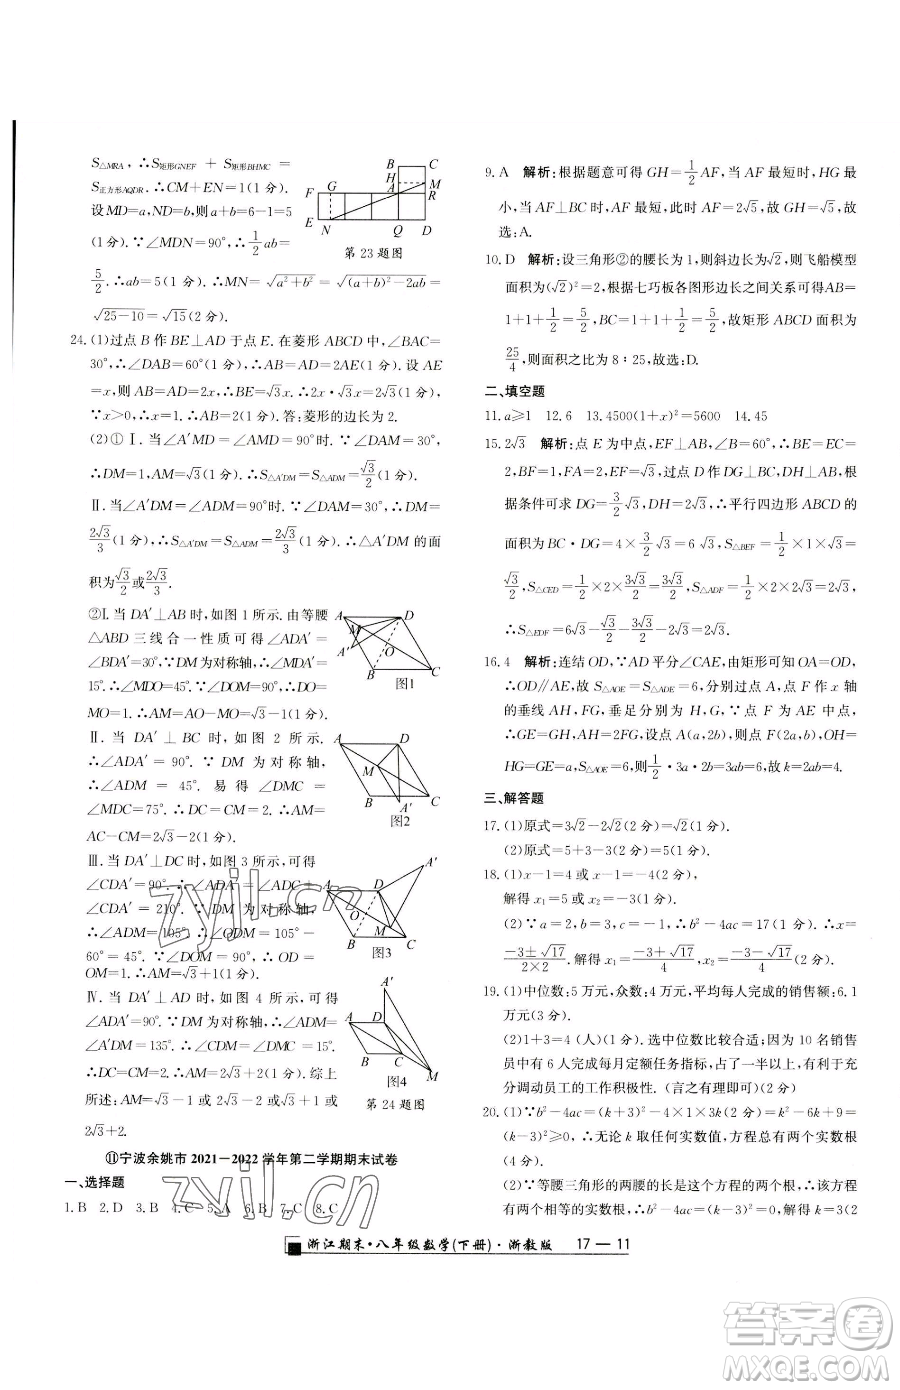 S△MRA, ∴S矩形GNEF + S矩形BHMC =
S正方形AQDR. ∴CM+EN=1(1 分).
设 MD=a, ND=b, 则 a+b=6-1=5
(1分). ∵∠MDN=90°, ∴1/2 ab=
5/2. ∴ab=5(1分). ∴MN=√(a²+b²)=√((a+b)²-2ab)=
√(25-10)=√15(2分).
B C
F G H M
A R
E N Q D
第 23 题图
24. (1)过点 B 作 BE⊥AD 于点 E. 在菱形 ABCD 中, ∵∠BAC=
30°, ∴∠DAB=60°(1 分). ∴AB=AD=2AE(1 分). 设 AE
=x, 则 AB=AD=2x(1 分), ∴BE=√3 x. ∴x·√3 x=2√3 x(1分).
∵x>0, ∴x=1. ∴AB=2(1 分). 答: 菱形的边长为 2.
(2)①Ⅰ. 当∠A′MD=∠AMD=90°时. ∵∠DAM=30°,
∴DM=1, AM=√3(1 分). ∴S△A′DM=S△ADM=√3/2(1 分).
Ⅱ. 当∠A′DM=∠ADM=90°时. ∵∠DAM=30°, ∴DM=
2√3/3(1 分), ∴S△A′DM=S△ADM=2√3/3(1 分). ∴△A′DM 的面
积为√3/2或2√3/3.
②Ⅰ. 当 DA′⊥AB 时, 如图 1 所示. 由等腰
△ABD 三线合一性质可得∠ADA′=
∠BDA′=30°. ∵DM 为对称轴, ∴∠MDA′=
15°. ∴∠MDO=45°. ∵∠DOM=90°, ∴DO=
MO=1. ∴AM=√3-1(1 分).
A D
M
A′ O
B C
图1
Ⅱ. 当 DA′⊥BC 时, 如图 2 所示, 可得
∠ADA′=90°. ∵DM 为对称轴,
∴∠ADM=45°. 易得∠DMC=
∠MDC=75°. ∴DC=CM=2. ∴AM=
AC-CM=2√3-2(1分).
A D
M
B A′ C
图2
Ⅲ. 当 DA′⊥DC 时, 如图 3 所示, 可得
∠CDA′=90°. ∴∠ADA′=∠ADC+
∠CDA′=210°. ∵DM 为对称轴,
∴∠ADM=105°. ∴∠ODM=105°-
60°=45°. ∵∠DOM=90°, ∴OD=
OM=1. ∴AM=√3+1(1分).
A′
A D
O
M
B C
图3
Ⅳ. 当 DA′⊥AD 时, 如图 4 所示, 可得
∠ADA′=90°. ∵DM 为对称轴, ∴∠ADM=
135°. ∴∠CDM=∠DMC=15°. ∴CD=
CM=2. ∴AM=2√3+2(1 分). 综上
所述: AM=√3-1 或 2√3-2 或√3+1 或
2√3+2.
A′
A D
B C
图4 M
第 24 题图
⑪宁波余姚市 2021-2022 学年第二学期期末试卷
一、选择题
1. B 2. D 3. B 4. C 5. A 6. B 7. C 8. C
9. A 解析: 根据题意可得 GH=1/2 AF, 当 AF 最短时, HG 最
小, 当 AF⊥BC 时, AF 最短, 此时 AF=2√5, 故 GH=√5, 故
选: A.
10. D 解析: 设三角形②的腰长为 1, 则斜边长为√2, 则飞船模型
面积为 (√2)²=2, 根据七巧板各图形边长之间关系可得 AB=
1+1+1/2=5/2, BC=1+1+1/2=5/2, 故矩形 ABCD 面积为
25/4, 则面积之比为 8∶25, 故选: D.
二、填空题
11. a≥1 12. 6 13. 4500(1+x)²=5600 14. 45
15. 2√3 解析: 点 E 为中点, EF⊥AB, ∠B=60°, ∴BE=EC=
2, BF=1, FA=2, EF=√3, 过点 D 作 DG⊥BC, DH⊥AB,
根据条件可求 DG=3/2√3, DH=2√3, ∴平行四边形 ABCD 的
的面积为 BC·DG=4×3/2√3=6√3, S△BEF=1/2×1×√3=
√3/2, S△CED=1/2×2×3√3/2=3√3/2, S△ADF=1/2×2×2√3=2√3.
∴S△EDF=6√3-√3/2-3√3/2-2√3=2√3.
16. 4 解析: 连结 OD, ∵AD 平分∠CAE, 由矩形可知 OA=OD,
∴OD∥AE, 故 S△AOE=S△ADE=6, 分别过点 A, 点 F 作 x 轴
的垂线 AH, FG, 垂足分别为 H, G, ∵点 F 为 AE 中点,
∴GE=GH, AH=2FG, 设点 A(a, 2b), 则点 F(2a, b), OH=
HG=GE=a, S△AOE=6, 则1/2·3a·2b=6, 故 k=2ab=4.
三、解答题
17. (1)原式=3√2-2√2(1 分)=√2(1 分).
(2)原式=5+3-3(2 分)=5(2 分).
18. (1)x-1=4 或 x-1=-4(2 分),
解得 x₁=5 或 x₂=-3(1 分).
(2)∵a=2, b=3, c=-1, ∴b²-4ac=17(1 分). ∴x=
(-3±√17)/(2×2). 解得 x₁=(-3+√17)/4, x₂=(-3-√17)/4(2 分).
19. (1)中位数: 5 万元, 众数: 4 万元, 平均每人完成的销售额: 6.1
万元(3 分).
(2)1+3=4 (人)(1 分). 选中位数比较合适; 因为 10 名销售
员中有 6 人完成每月定额任务指标, 占了一半以上, 有利于充
分调动员工的工作积极性. (言之有理即可)(2 分)
20. (1)∵b²-4ac=(k+3)²-4×1×3k(2 分)=k²-6k+9=
(k-3)²≥0(1 分). ∴此方程总有实数根(1 分).
(2)∵等腰三角形的两腰的长是这个方程的两个根, ∴方程有
两个相等的实数根(1 分). ∴(k-3)²=0(2 分). ∴k=3(1分).
浙江期末·八年级数学(下册)·浙教版 17—11
zyjl.cn
zyjl.cn
答案圈
MXQE.COM